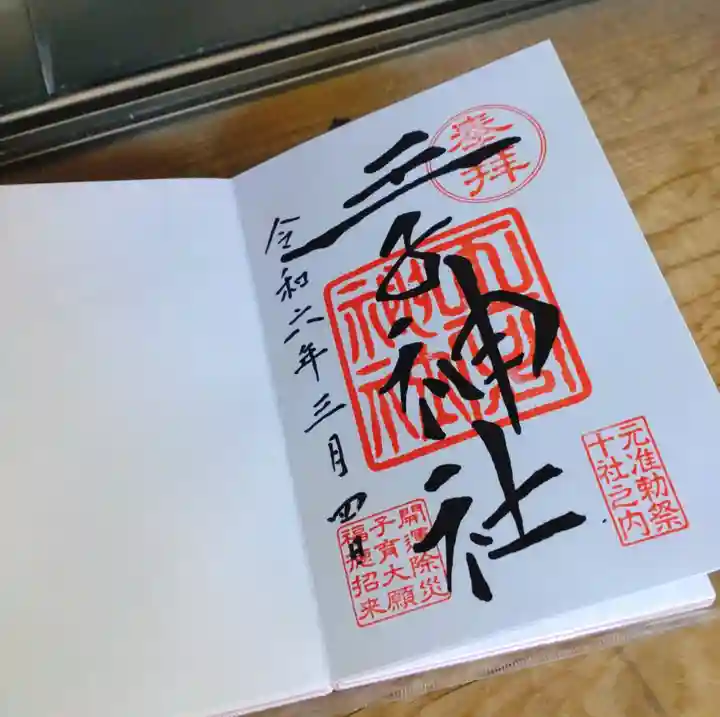 奉拝
元准勅祭
十社之内
王子神社
開運除災
子育大願
福徳招来
令和六年三月四日